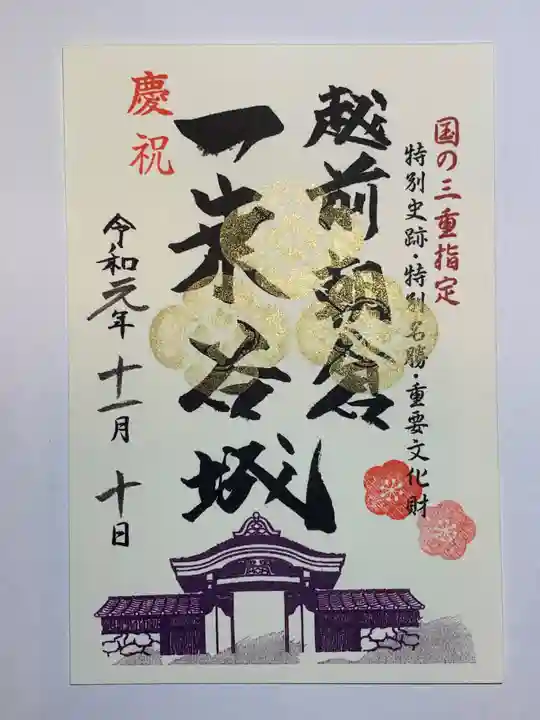 国の三重指定
特別史跡・特別名勝・重要文化財
越前朝倉
一乗谷城
慶祝
令和元年十一月十日